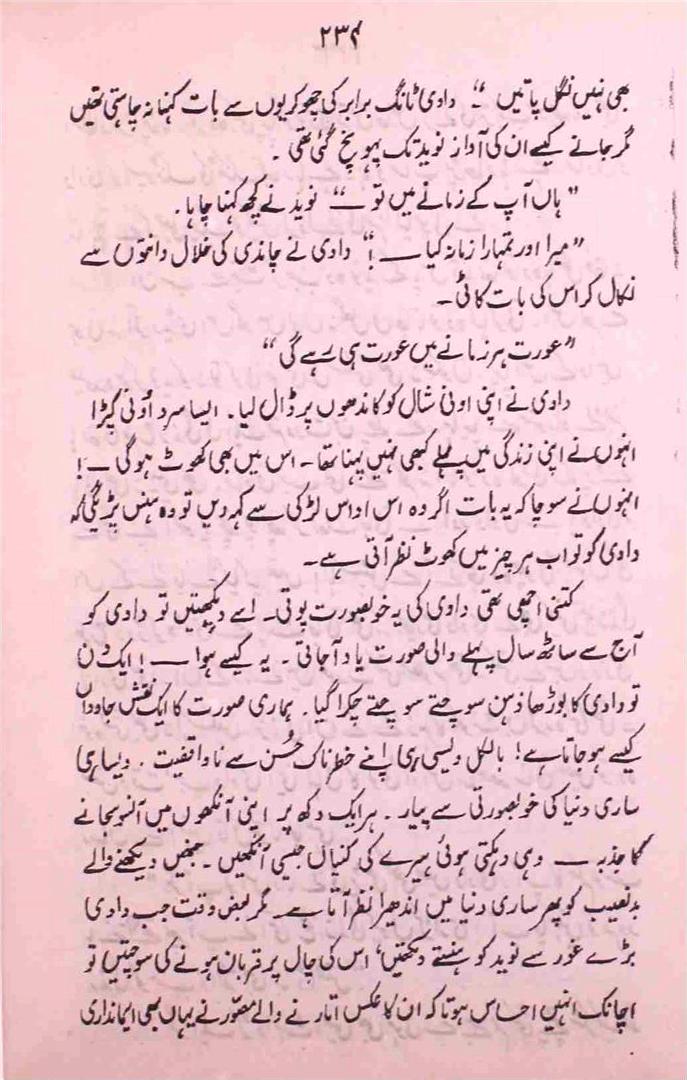 ۲۳۶
بھی نہیں نگل پاتیں “۔ دادی ٹانگ برابر کی چھوکریوں سے بات کہنا نہ چاہتی تھیں
مگر جانے کیسے ان کی آواز نوید تک پہونچ گئی تھی ۔
” ہاں آپ کے زمانے میں تو ــ “ نوید نے کچھ کہنا چاہا۔
” میرا اور تمہارا زمانہ کیا ـــــ !“ دادی نے چاندی کی خلال دانتوں سے
نکال کر اس کی بات کاٹی ۔
” عورت ہر زمانے میں عورت ہی رہے گی “
دادی نے اپنی اونی شال کو کاندھوں پر ڈال لیا ۔ ایسا سرد اُونی کپڑا
انہوں نے اپنی زندگی میں پہلے کبھی نہیں پہنا تھا ۔ اس میں بھی کھوٹ ہوگی ـــ !
انہوں نے سوچا کہ یہ بات اگر وہ اس اداس لڑکی سے کہہ دیں تو وہ ہنس پڑیگی کہ
دادی کو تو اب ہر چیز میں کھوٹ نظر آتی ہے ۔
کتنی اچھی تھی دادی کی یہ خوبصورت پوتی ۔ اسے دیکھتیں تو دادی کو
آج سے ساٹھ سال پہلے والی صورت یاد آجاتی ۔ یہ کیسے ہوا ـــــ ! ایک دن
تو دادی کا بوڑھا ذہن سوچتے سوچتے چکرا گیا ۔ ہماری صورت کا ایک نقش جاوداں
کیسے ہو جاتا ہے ! بالکل ویسی ہی اپنے خطرناک حُسن سے ناواقفیت ۔ ویسا ہی
ساری دنیا کی خوبصورتی سے پیار ۔ ہر ایک دکھ پر اپنی آنکھوں میں آنسو بجانے
کا جذبہ ـــ وہی دہکتی ہوئی ہیرے کی کنیاں جیسی آنکھیں ۔ جنھیں دیکھنے والے
بدنصیب کو پھر ساری دنیا میں اندھیرا نظر آتا ہے ۔ مگر بعض وقت جب دادی
بڑے غور سے نوید کو ہنستے دیکھتیں ‘ اس کی چال پر قربان ہونے کی سوچتیں تو
اچانک انہیں احساس ہوتا کہ ان کا عکس اتارنے والے مصور نے یہاں بھی ایمانداری